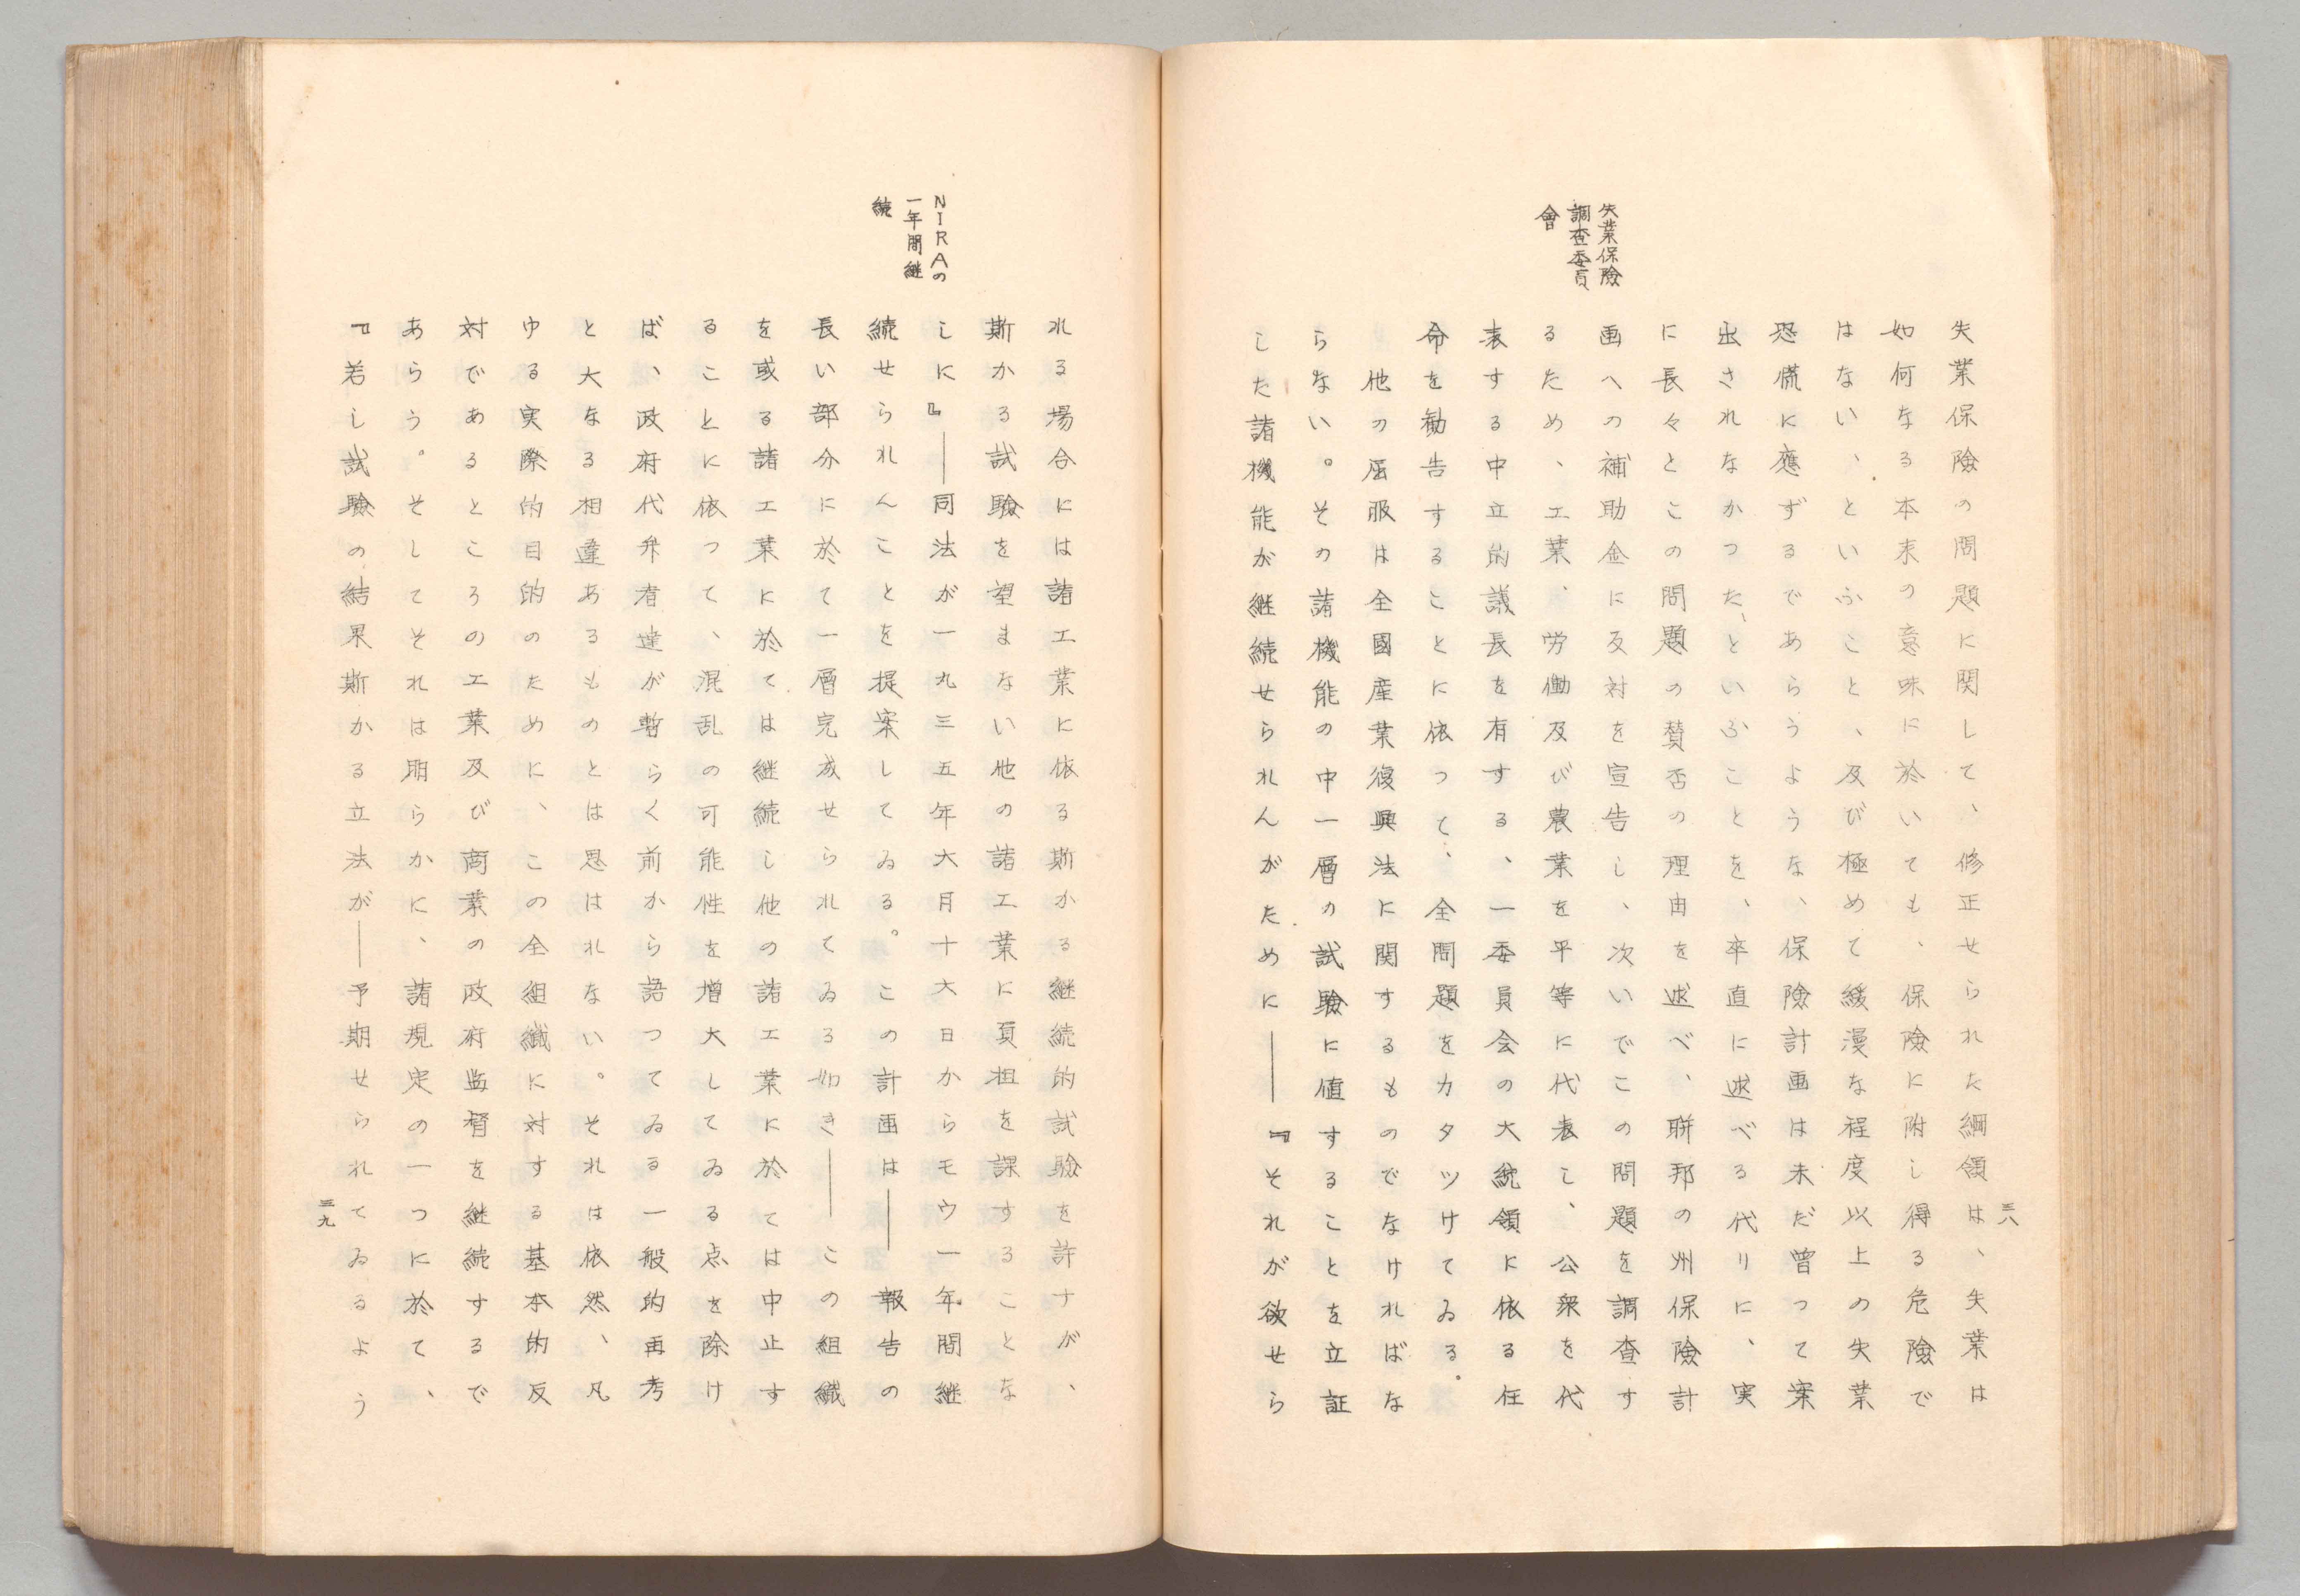 三八
失業保険
調査委員
會
失業保険の問題に関して、修正せられた綱領は、失業は
如何なる本来の意味に於いても、保険に附し得る危険で
はない、といふこと、及び極めて緩漫な程度以上の失業
恐慌に應ずるであらうような、保険計画は未だ曾って案
出されなかつた、といふことを、卒直に述べる代りに、実
に長々とこの問題の賛否の理由を述べ、聨邦の州保険計
画への補助金に反対を宣告し、次いでこの問題を調査す
るため、工業、労働及び農業を平等に代表し、公衆を代
表する中立的議長を有する、一委員会の大統領に依る任
命を勧告することに依つて、全問題をカタツけてゐる。
他の屈服は全國産業復興法に関するものでなければな
らない。その諸機能の中一層の試驗に値することを立証
した諸機能が継続せられんがために――『それが欲せら
NIRAの
一年間継
続
れる場合には諸工業に依る斯かる継続的試驗を許すが、
斯かる試驗を望まない他の諸工業に頁担を課することな
しに』――同法が一九三五年六月十六日からモウ一年間継
続せられんことを提案してゐる。この計画は――報告の
長い部分に於て一層完成せられてゐる如き――この組織
を或る諸工業に於ては継続し他の諸工業に於ては中止す
ることに依つて、混乱の可能性を増大してゐる点を除け
ば、政府代弁者達が暫らく前から語つてゐる一般的再考
と大なる相違あるものとは思はれない。それは依然、凡
ゆる実際的目的のために、この全組織に対する基本的反
対であるところの工業及び商業の政府監督を継続するで
あらう。そしてそれは明らかに、諸規定の一つに於て、
『若し試驗の結果斯かる立法が――予期せられてゐるよう
三九